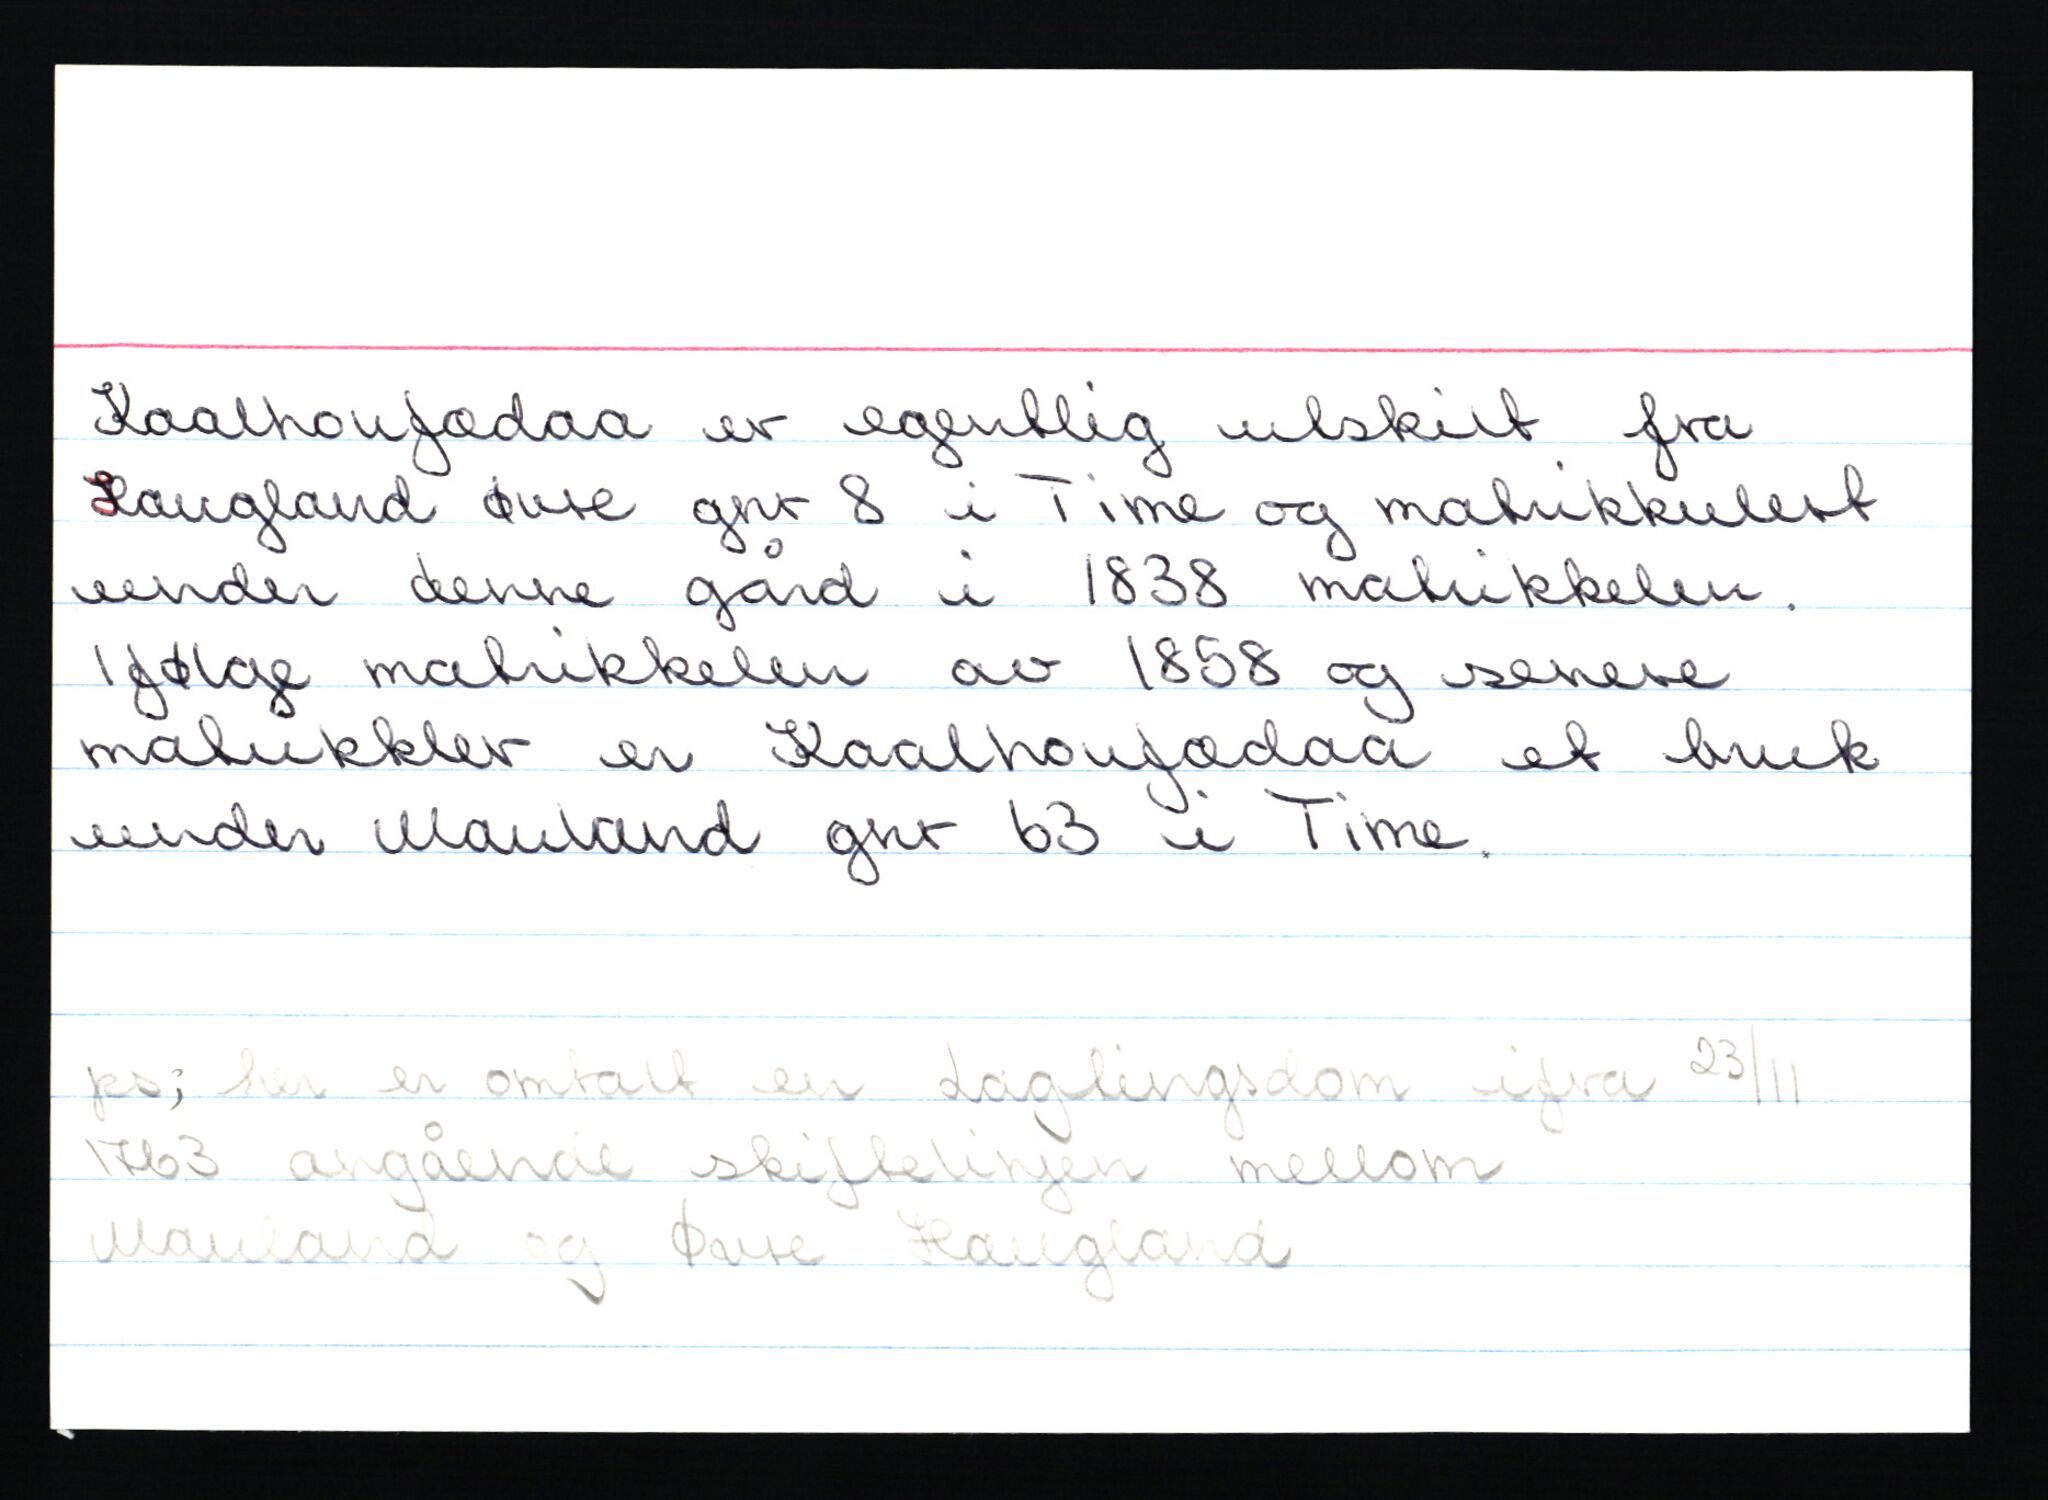 Kaalhoufædaa er egentlig utskilt fra
Haugland Øvre gnr 8 i Time og matrikkulert
under denne gård i 1838 matrikkelen.
Ifølge matrikkelen av 1858 og senere
matrikkler er Kaalhoufædaa et bruk
under Mauland gnr 63 i Time.
ps; her er omtalt en Laglingsdom ifra 23/11
1763 angående skiftelinjen mellom
Mauland og Øvre Haugland